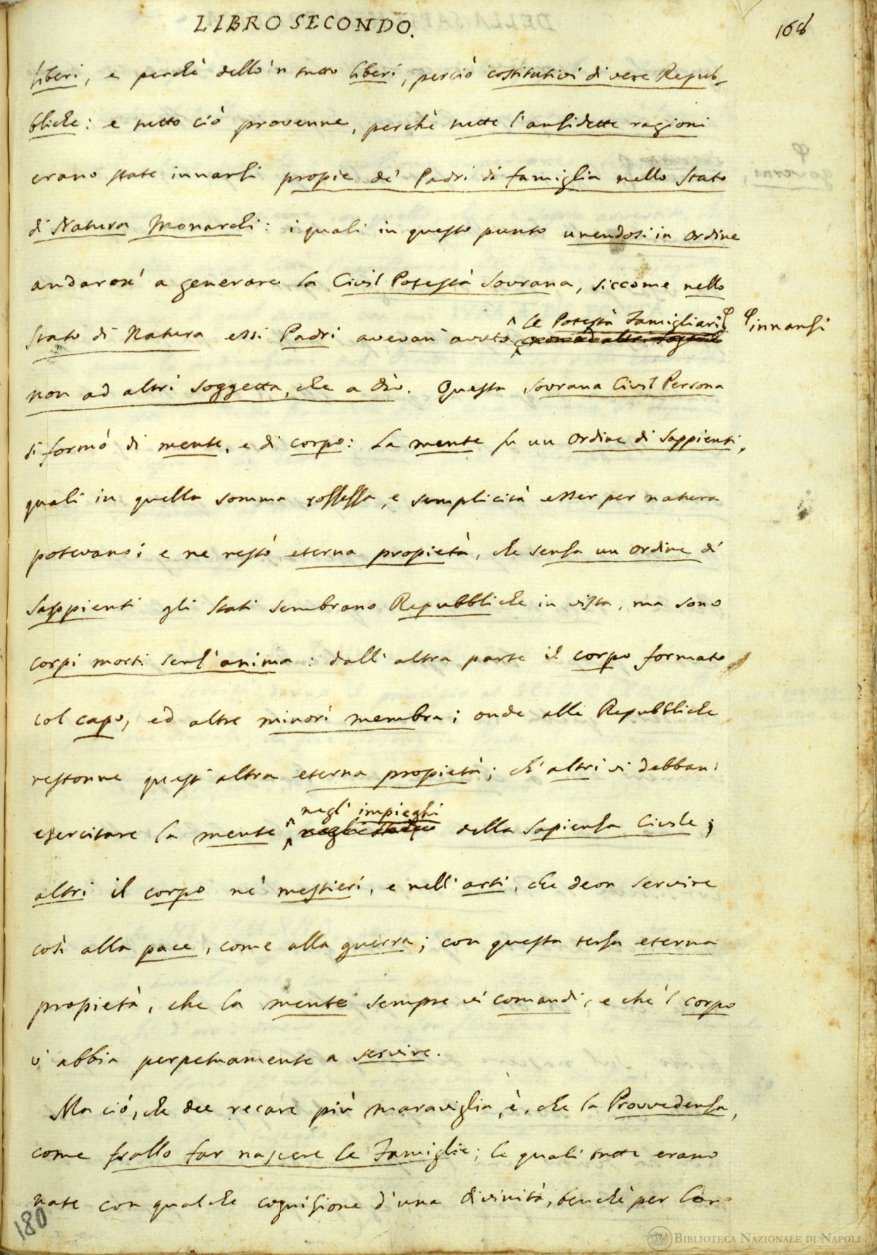 LIBRO SECONDO.
168
liberi, e perchè dello 'n tutto liberi, perciò costitutivi di vere Repub-
bliche: e tutto ciò provenne, perchè tutte l'ansidette ragioni
erano state innanzi propie de' Padri di famiglia nello Stato
di Natura Monarchi: i quali in questo punto unendosi in ordine
andaron' a generare la Civil Potestà Sovrana, siccome nello
Stato di Natura essi Padri avevan' avuto le Potestà Famigliari
innanzi
non ad altri soggetta, che a Dio. Questa sovrana Civil Persona
si formò di mente, e di corpo: La mente fu un ordine di Sappienti,
quali in quella somma rozzezza, e semplicità esser per natura
potevano; e ne restò eterna propietà, che senza un ordine di
Sappienti gli Stati sembrano Repubbliche in vista, ma sono
corpi morti senz'anima: dall'altra parte il corpo formato
col capo, ed altre minori membra; onde alle Repubbliche
restonne quest'altra eterna propietà; ch'altri vi debbani
esercitare la mente negl'impieghi della Sapienza Civile;
altri il corpo ne' mestieri, e nell'arti, che deon servire
così alla pace, come alla guerra; con questa terza eterna
propietà, che la mente sempre vi comandi, e che 'l corpo
v'abbia perpetuamente a servire.
Ma ciò, che dee recare più maraviglia, è, che la Provvedenza,
come trallo far nascere le Famiglie; le quali tutte erano
nate con qualche cognizione d'una divinità, benchè per loro
180
governi,
BIBLIOTECA NAZIONALE DI NAPOLI